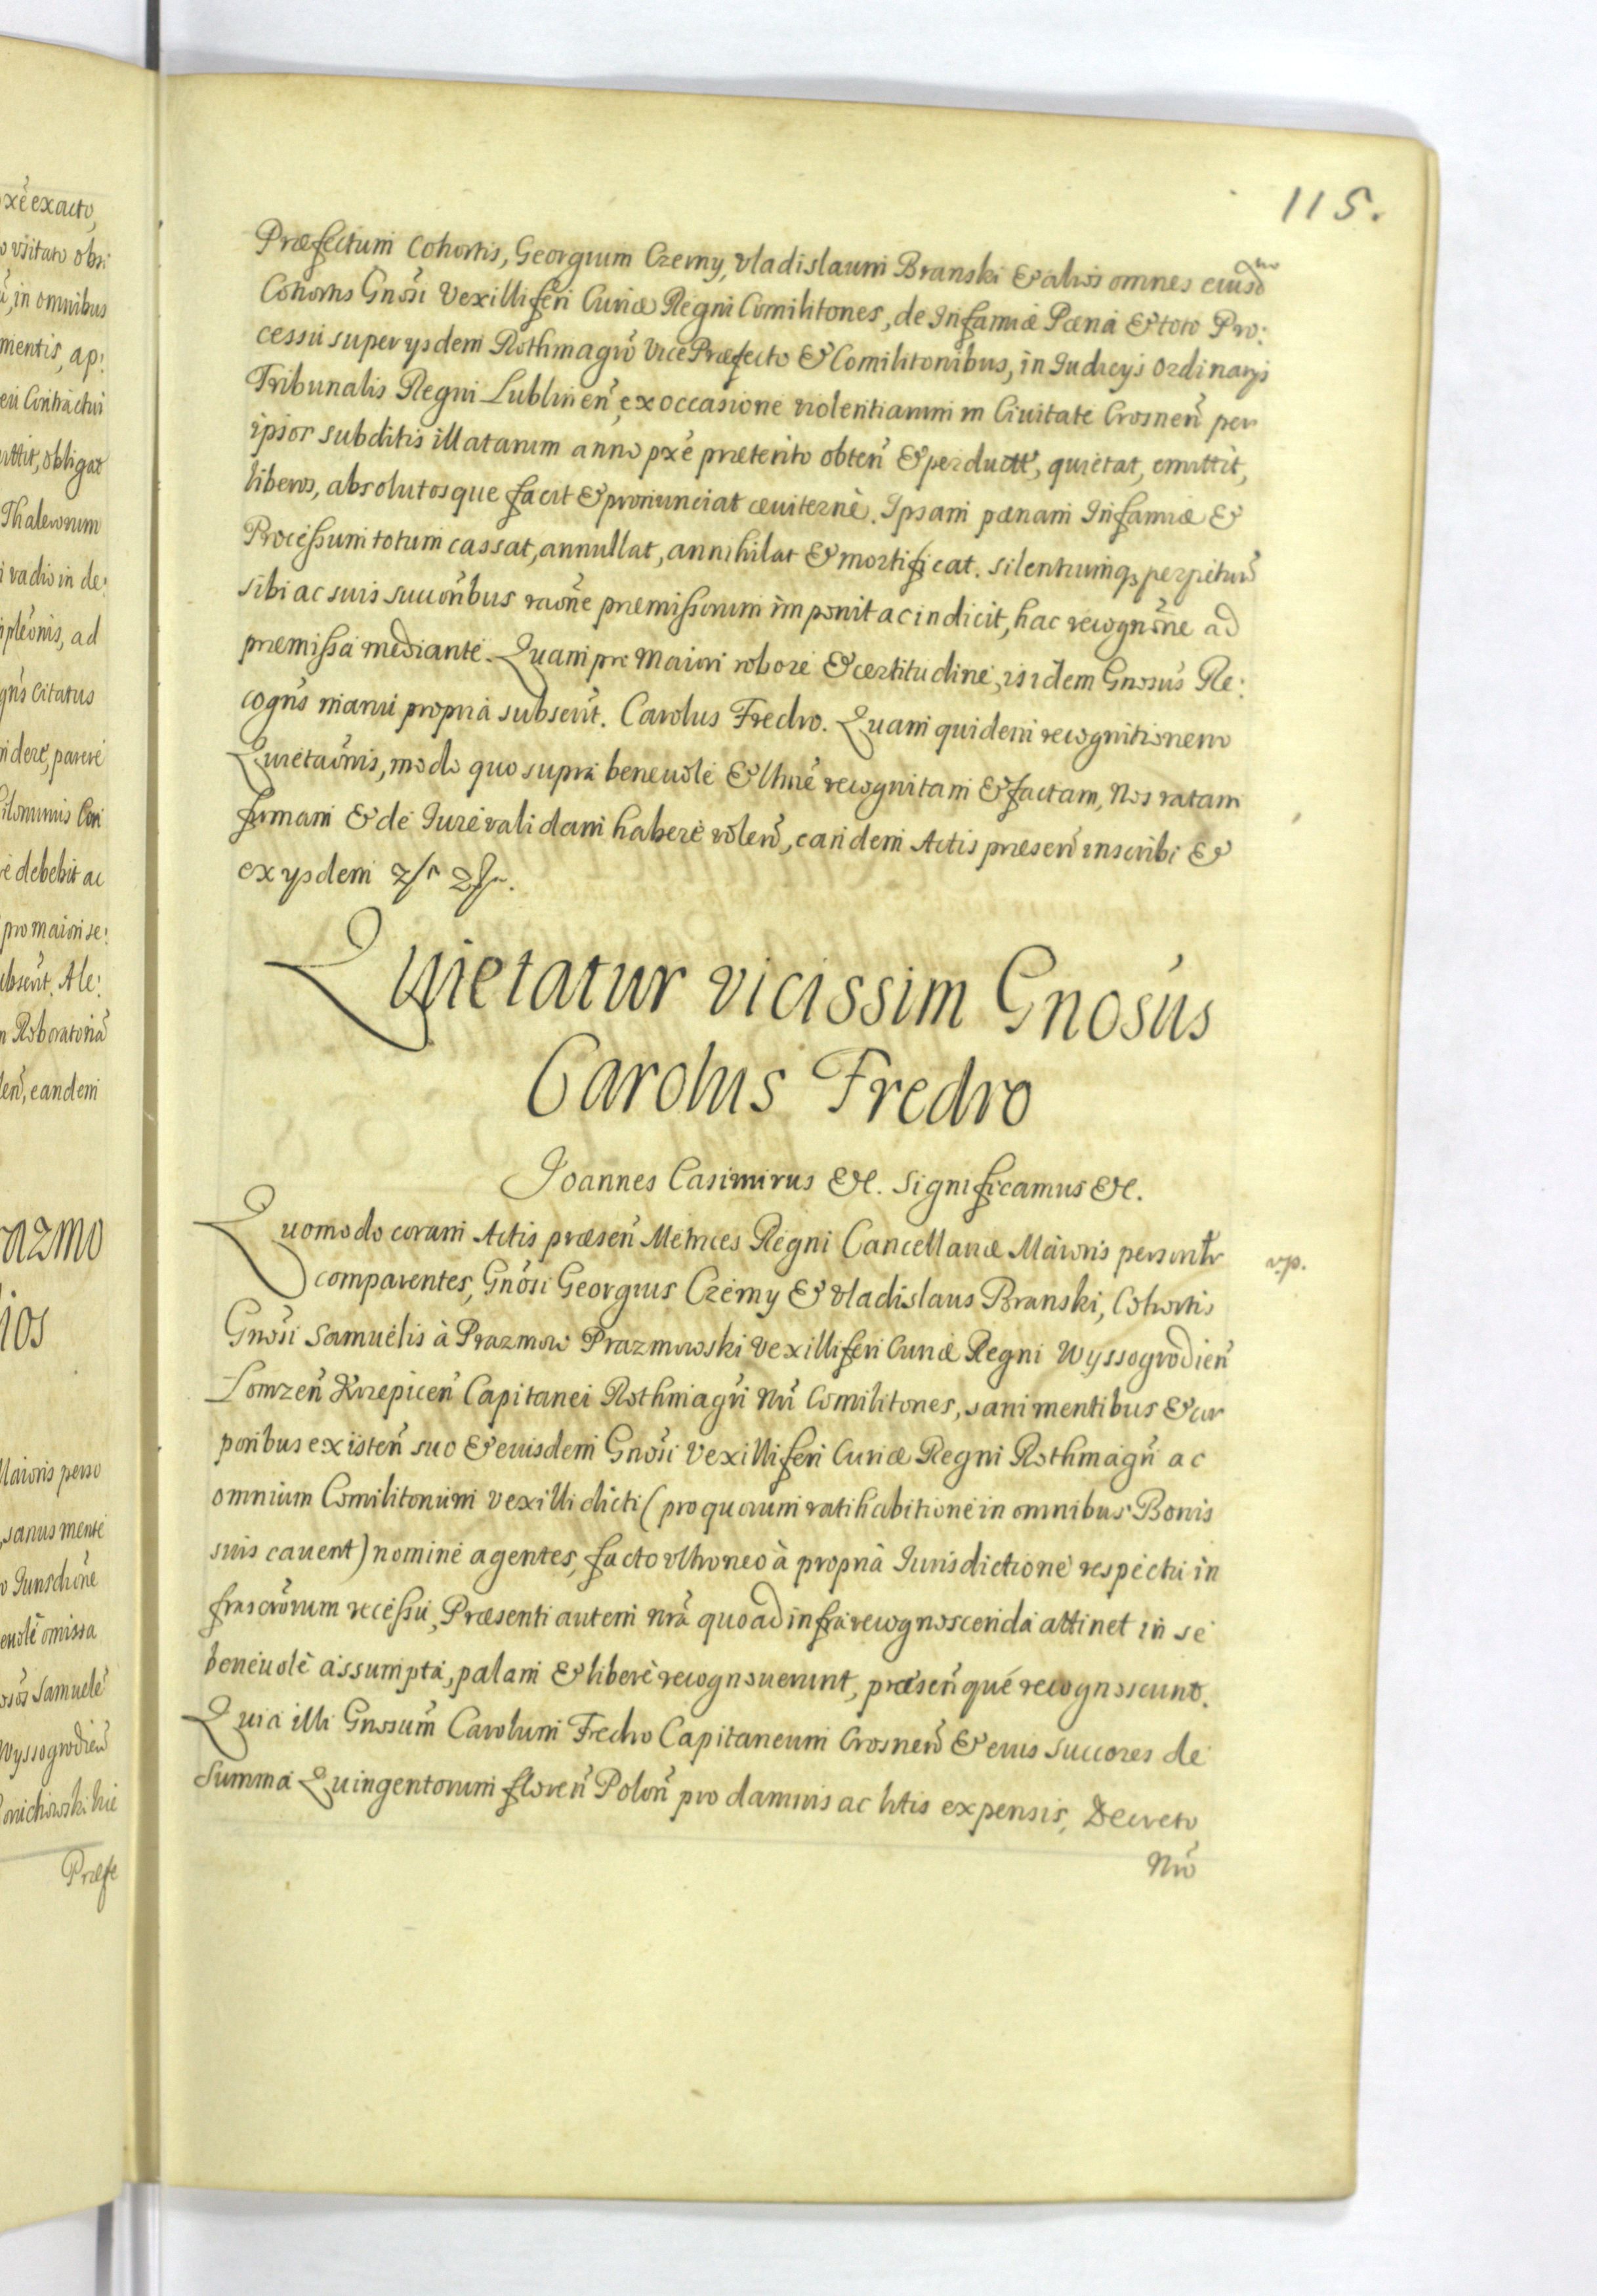 115.
Præfectum Cohortis, Georgium Czerny, Vladislaum Branski & alios omnes eiusd
Cohortis Gnosi Vexilliferi Curiæ Regni Comilitones, de Infamiæ Pæna & toto Pro:
cessu super ijsdem Rothmagro Vice Præfecto & Comilitonibus, in Iudicijs Ordinarijs
Tribunalis Regni Lublinen, ex occasione violentiarum in Civitate Crosnen per
ipsor subditis illatarum anno pxe præterito obten & perduct, quietat, emittit,
liberos, absolutosque facit & pronunciat æviterne. Ipsam pænam Infamiæ &
Processum totum cassat, annullat, annihilat & mortificat. silentiumq perpetuu
sibi ac suis succoribus raone præmissorum imponit ac indicit, hac recognone ad
præmissa mediante. Quam pro maiori robore & certitudine, is idem Gnosus Re:
cogns manu propria subscrit. Carolus Fredro. Quam quidem recognitionem
Quietaonis, modo quo supra benevole & lbere recognitam & factam, Nos ratam
firmam & de Iure validam habere volen, eandem Actis præsen inscribi &
ex ijsdem
Quietatur vicissim Gnosus
Carolus Fredro
Joannes Casimirus &c. Significamus &c.
Quomodo coram Actis præsen Metrices Regni Cancellariæ Maioris personlr
r.p.
comparentes, Gnosi Georgius Czerny & Vladislaus Branski, Cohortis
Gnosi Samuelis à Prazmow Prazmowski Vexilliferi Curiæ Regni Wyssogrodien
Lomzen Krzepicen Capitanei Rothmagri Nri Comilitones, sani mentibus & cor
poribus existen suo & eiusdem Gnosi Vexilliferi Curiæ Regni Rothmagri ac
omnium Comilitonum Vexilli dicti (pro quorum ratihabitione in omnibus Bonis
suis cavent) nomine agentes, facto ultroneo à propria Iurisdictione respectu in
frascrorum recessu, Præsenti autem nra quoad infra recognoscenda attinet in se
benevole assumpta, palam & libere recognoverunt, præsenque recognoscunt.
Quia illi Gnosum Carolum Fredro Capitaneum Crosnen & eius Succores de
Summa Quingentorum floren Polon pro damnis ac litis expensis, Decreto
Nro